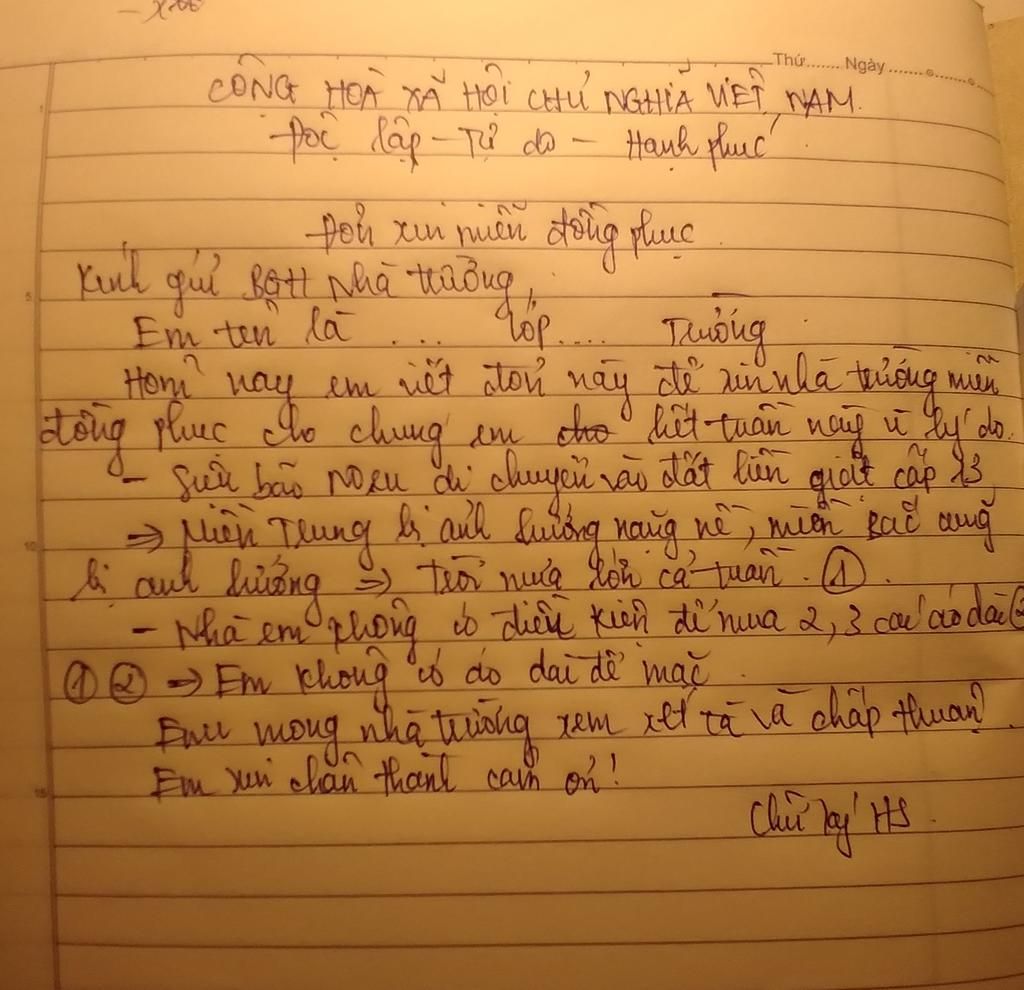 Thứ....... Ngày ..............
CỘNG HOÀ XÃ HỘI CHỦ NGHĨA VIỆT NAM.
Độc lập - Tự do - Hạnh phúc
Đơn xin miễn đồng phục
Kính gửi BGH nhà trường,
Em tên là .... lớp.... Trường
Hôm nay em viết đơn này để xin nhà trường miễn
đồng phục cho chúng em cho hết tuần này vì lý do.
- Siêu bão NORU di chuyển vào đất liền giật cấp 13
=> Miền Trung bị ảnh hưởng nặng nề, miền Bắc cũng
bị ảnh hưởng => trời mưa lớn cả tuần. ①.
- Nhà em không có điều kiện để mua 2, 3 cái áo dài ②
① ② => Em không có áo dài để mặc.
Em mong nhà trường xem xét và chấp thuận.
Em xin chân thành cảm ơn!
Chữ ký HS.